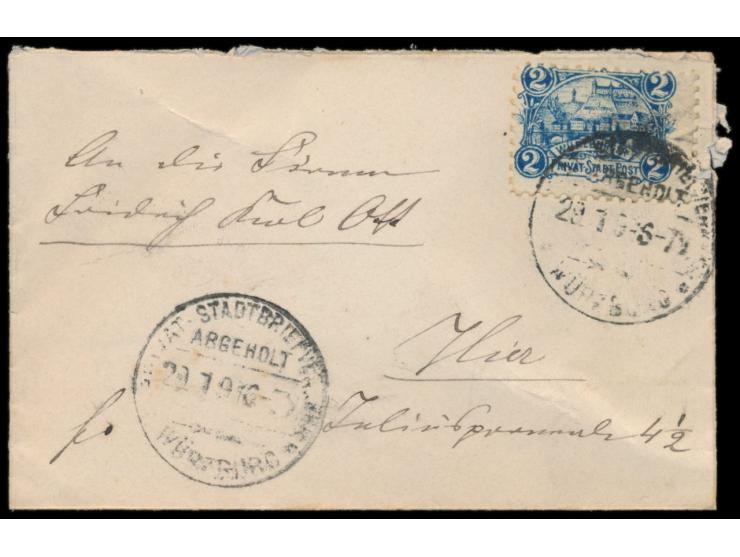 2 2
2 2
PRIVAT-STADT-POST
ABGEHOLT
WÜRZBURG
An die Firma
Fridrich Karl Ott
PRIVAT-STADTBRIEFVERKEHR
ABGEHOLT
WÜRZBURG
Hier
fr Juliuspromenade 4½